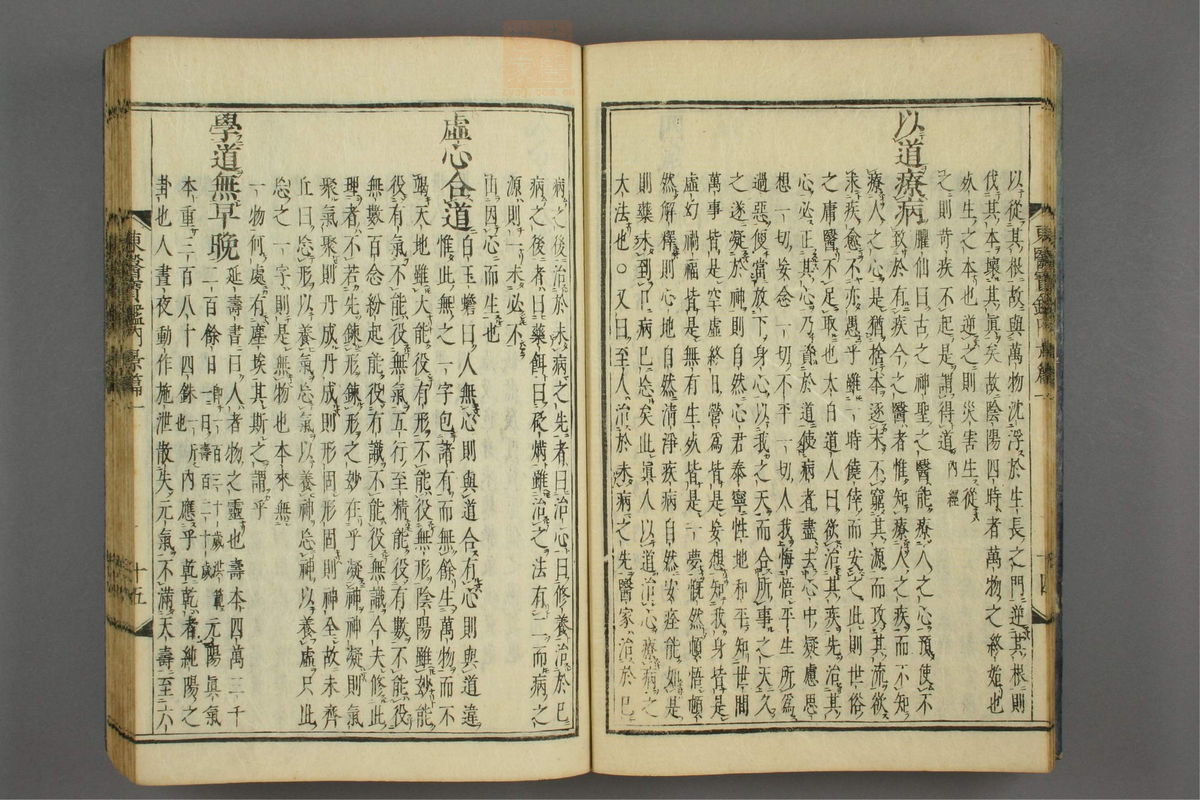 以從其根故與萬物沈浮於生長之門逆其根則
伐其本壞其眞矣故陰陽四時者萬物之終始也
死生之本也逆之則災害生從
之則苛疾不起是謂得道內經
以道療病
臞仙曰古之神聖之醫能療人之心預使不
致於有疾今之醫者惟知療人之疾而不知
療人之心是猶捨本逐末不窮其源而攻其流欲
求疾愈不亦愚乎雖一時僥倖而安之此則世俗
之庸醫不足取也太白眞人曰欲治其疾先治其
心必正其心乃資於道使病者盡去心中疑慮思
想一切妄念一切不平一切人我悔悟平生所爲
過惡便當放下身心以我之天而合所事之天久
之遂凝於神則自然心君泰寧性地和平知世間
萬事皆是空虛終日營爲皆是妄想知我身皆是
虛幻禍福皆是無有生死皆是一夢慨然頓悟頓
然解釋則心地自然清淨疾病自然安痊能如是
則藥未到口病已忘矣此眞人以道治心療病之
大法也○又曰至人治於未病之先醫家治於已
病之後治於未病之先者曰治心曰修養治於已
病之後者曰藥餌曰砭焫雖治之法有二而病之
源則一未必不
由因心而生也
虛心合道
白玉蟾曰人無心則與道合有心則與道違
惟此無之一字包諸有而無餘生萬物而不
竭天地雖大能役有形不能役無形陰陽雖妙能
役有氣不能役無氣五行至精能役有數不能役
無數百念紛起能役有識不能役無識今夫修此
理者不若先鍊形鍊形之妙在乎凝神神凝則氣
聚氣聚則丹成丹成則形固形固則神全故宋齊
丘曰忘形以養氣忘氣以養神忘神以養虛只此
忘之一字則是無物也本來無
一物何處有塵埃其斯之謂乎
學道無早晚
延壽書曰人者物之靈也壽本四萬三千
二百餘日卽一百二十歲元陽眞氣
本重三百八十四銖內應乎乾乾者純陽之
卦也人晝夜動作施泄散失元氣不滿天壽至六
東醫寶鑑內景篇一
十四
東醫寶鑑內景篇一
十五